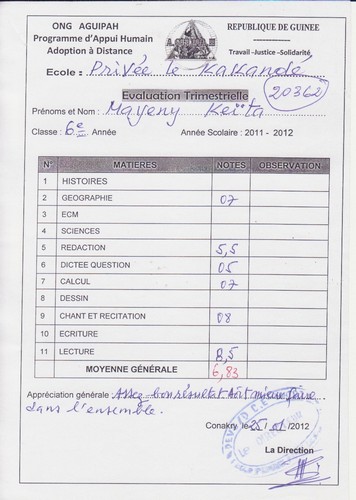 ONG AGUIPAH
Programme d'Appui Humain
Adoption à Distance
REPUBLIQUE DE GUINEE
Travail -Justice -Solidarité
Ecole : Privée le Kakandé
Evaluation Trimestrielle
20362
Prénoms et Nom : Mayeny Keïta
Classe : 6e Année Année Scolaire : 2011 - 2012
N° MATIERES NOTES OBSERVATION
1 HISTOIRES
2 GEOGRAPHIE 07
3 ECM
4 SCIENCES
5 REDACTION 5,5
6 DICTEE QUESTION 05
7 CALCUL 07
8 DESSIN
9 CHANT ET RECITATION 08
10 ECRITURE
11 LECTURE 8,5
MOYENNE GÉNÉRALE 6,83
Appréciation générale Assez bon résultat doit mieux faire
dans l'ensemble.
Conakry le 25/01/2012
La Direction